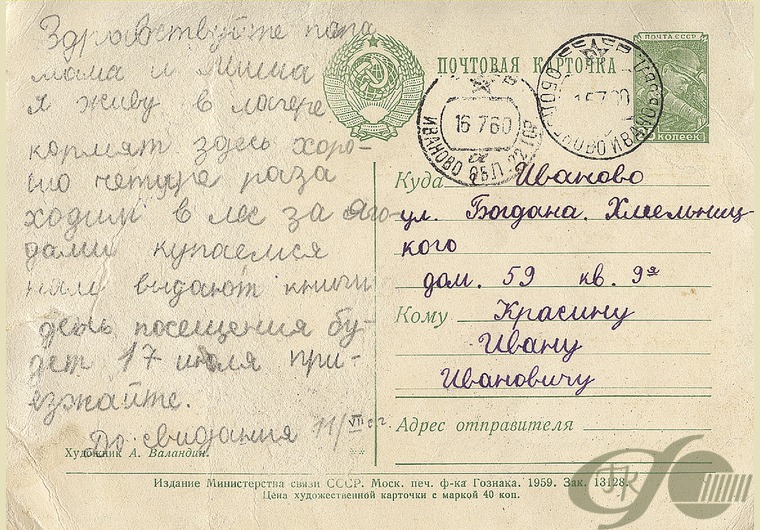 Здравствуйте папа
мама и Миша
я живу в лагере
кормят здесь хоро-
шо четыре раза
ходим в лес за яго-
дами купаемся
нам выдают книги
день посещения бу-
дет 17 июля при-
езжайте.
До свидания 11/VII
Художник А. Валандин.
ПОЧТОВАЯ КАРТОЧКА
ПОЧТА СССР
КОПЕЕК
ИВАНОВО ОБЛ.
16 7 60
Куда Иваново
ул. Богдана Хмельниц-
кого
дом. 59 кв. 9я
Кому Красину
Ивану
Ивановичу
Адрес отправителя
Издание Министерства связи СССР. Моск. печ. ф-ка Гознака. 1959. Зак. 13128.
Цена художественной карточки с маркой 40 коп.